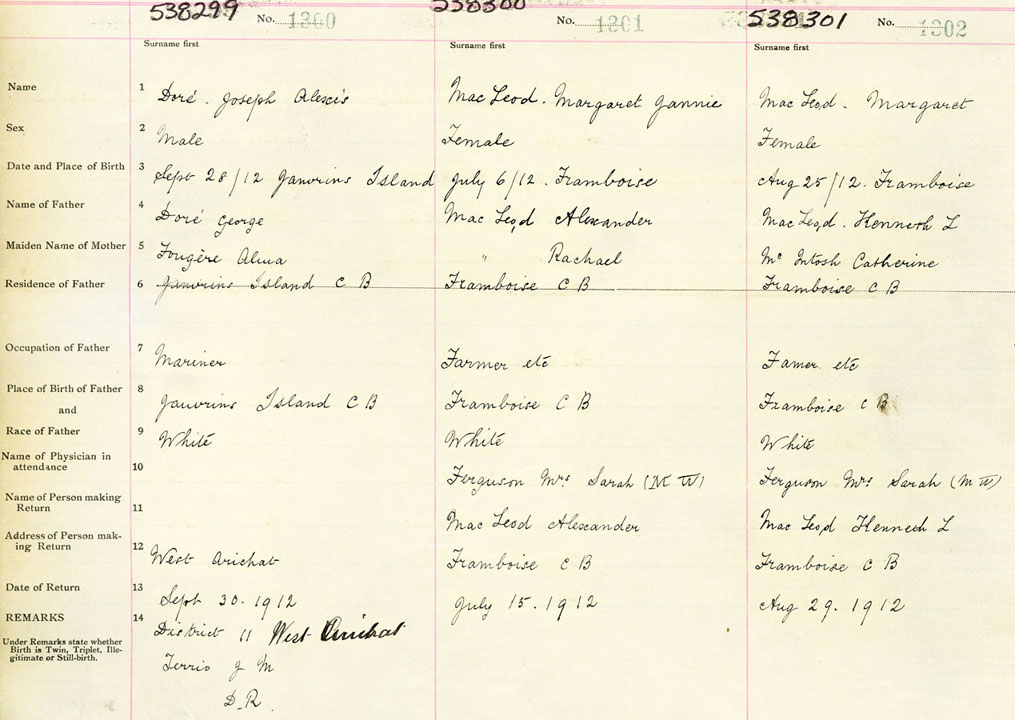 538299 No. 1300 538300 No. 1301 538301 No. 1302
Surname first Surname first Surname first
Name 1 Doré. Joseph Alexis Mac Leod. Margaret Jannie Mac Leod. Margaret
Sex 2 Male Female Female
Date and Place of Birth 3 Sept 28/12 Janvrins Island July 6/12. Framboise Aug 25/12. Framboise
Name of Father 4 Doré George Mac Leod Alexander Mac Leod. Kenneth L
Maiden Name of Mother 5 Fougère Alma " Rachael Mc Intosh Catherine
Residence of Father 6 Janvrins Island C B Framboise C B Framboise C B
Occupation of Father 7 Mariner Farmer etc Famer etc
Place of Birth of Father 8 Janvrins Island C B Framboise C B Framboise C B
and
Race of Father 9 White White White
Name of Physician in
attendance 10 Ferguson Mrs Sarah (M W) Ferguson Mrs Sarah (M W)
Name of Person making
Return 11 Mac Leod Alexander Mac Leod Kenneth L
Address of Person mak-
ing Return 12 West Arichat Framboise C B Framboise C B
Date of Return 13 Sept 30. 1912 July 15. 1912 Aug 29. 1912
REMARKS 14 District 11 West Arichat
Under Remarks state whether
Birth is Twin, Triplet, Ille-
gitimate or Still-birth.
Terrio J M
D. R.